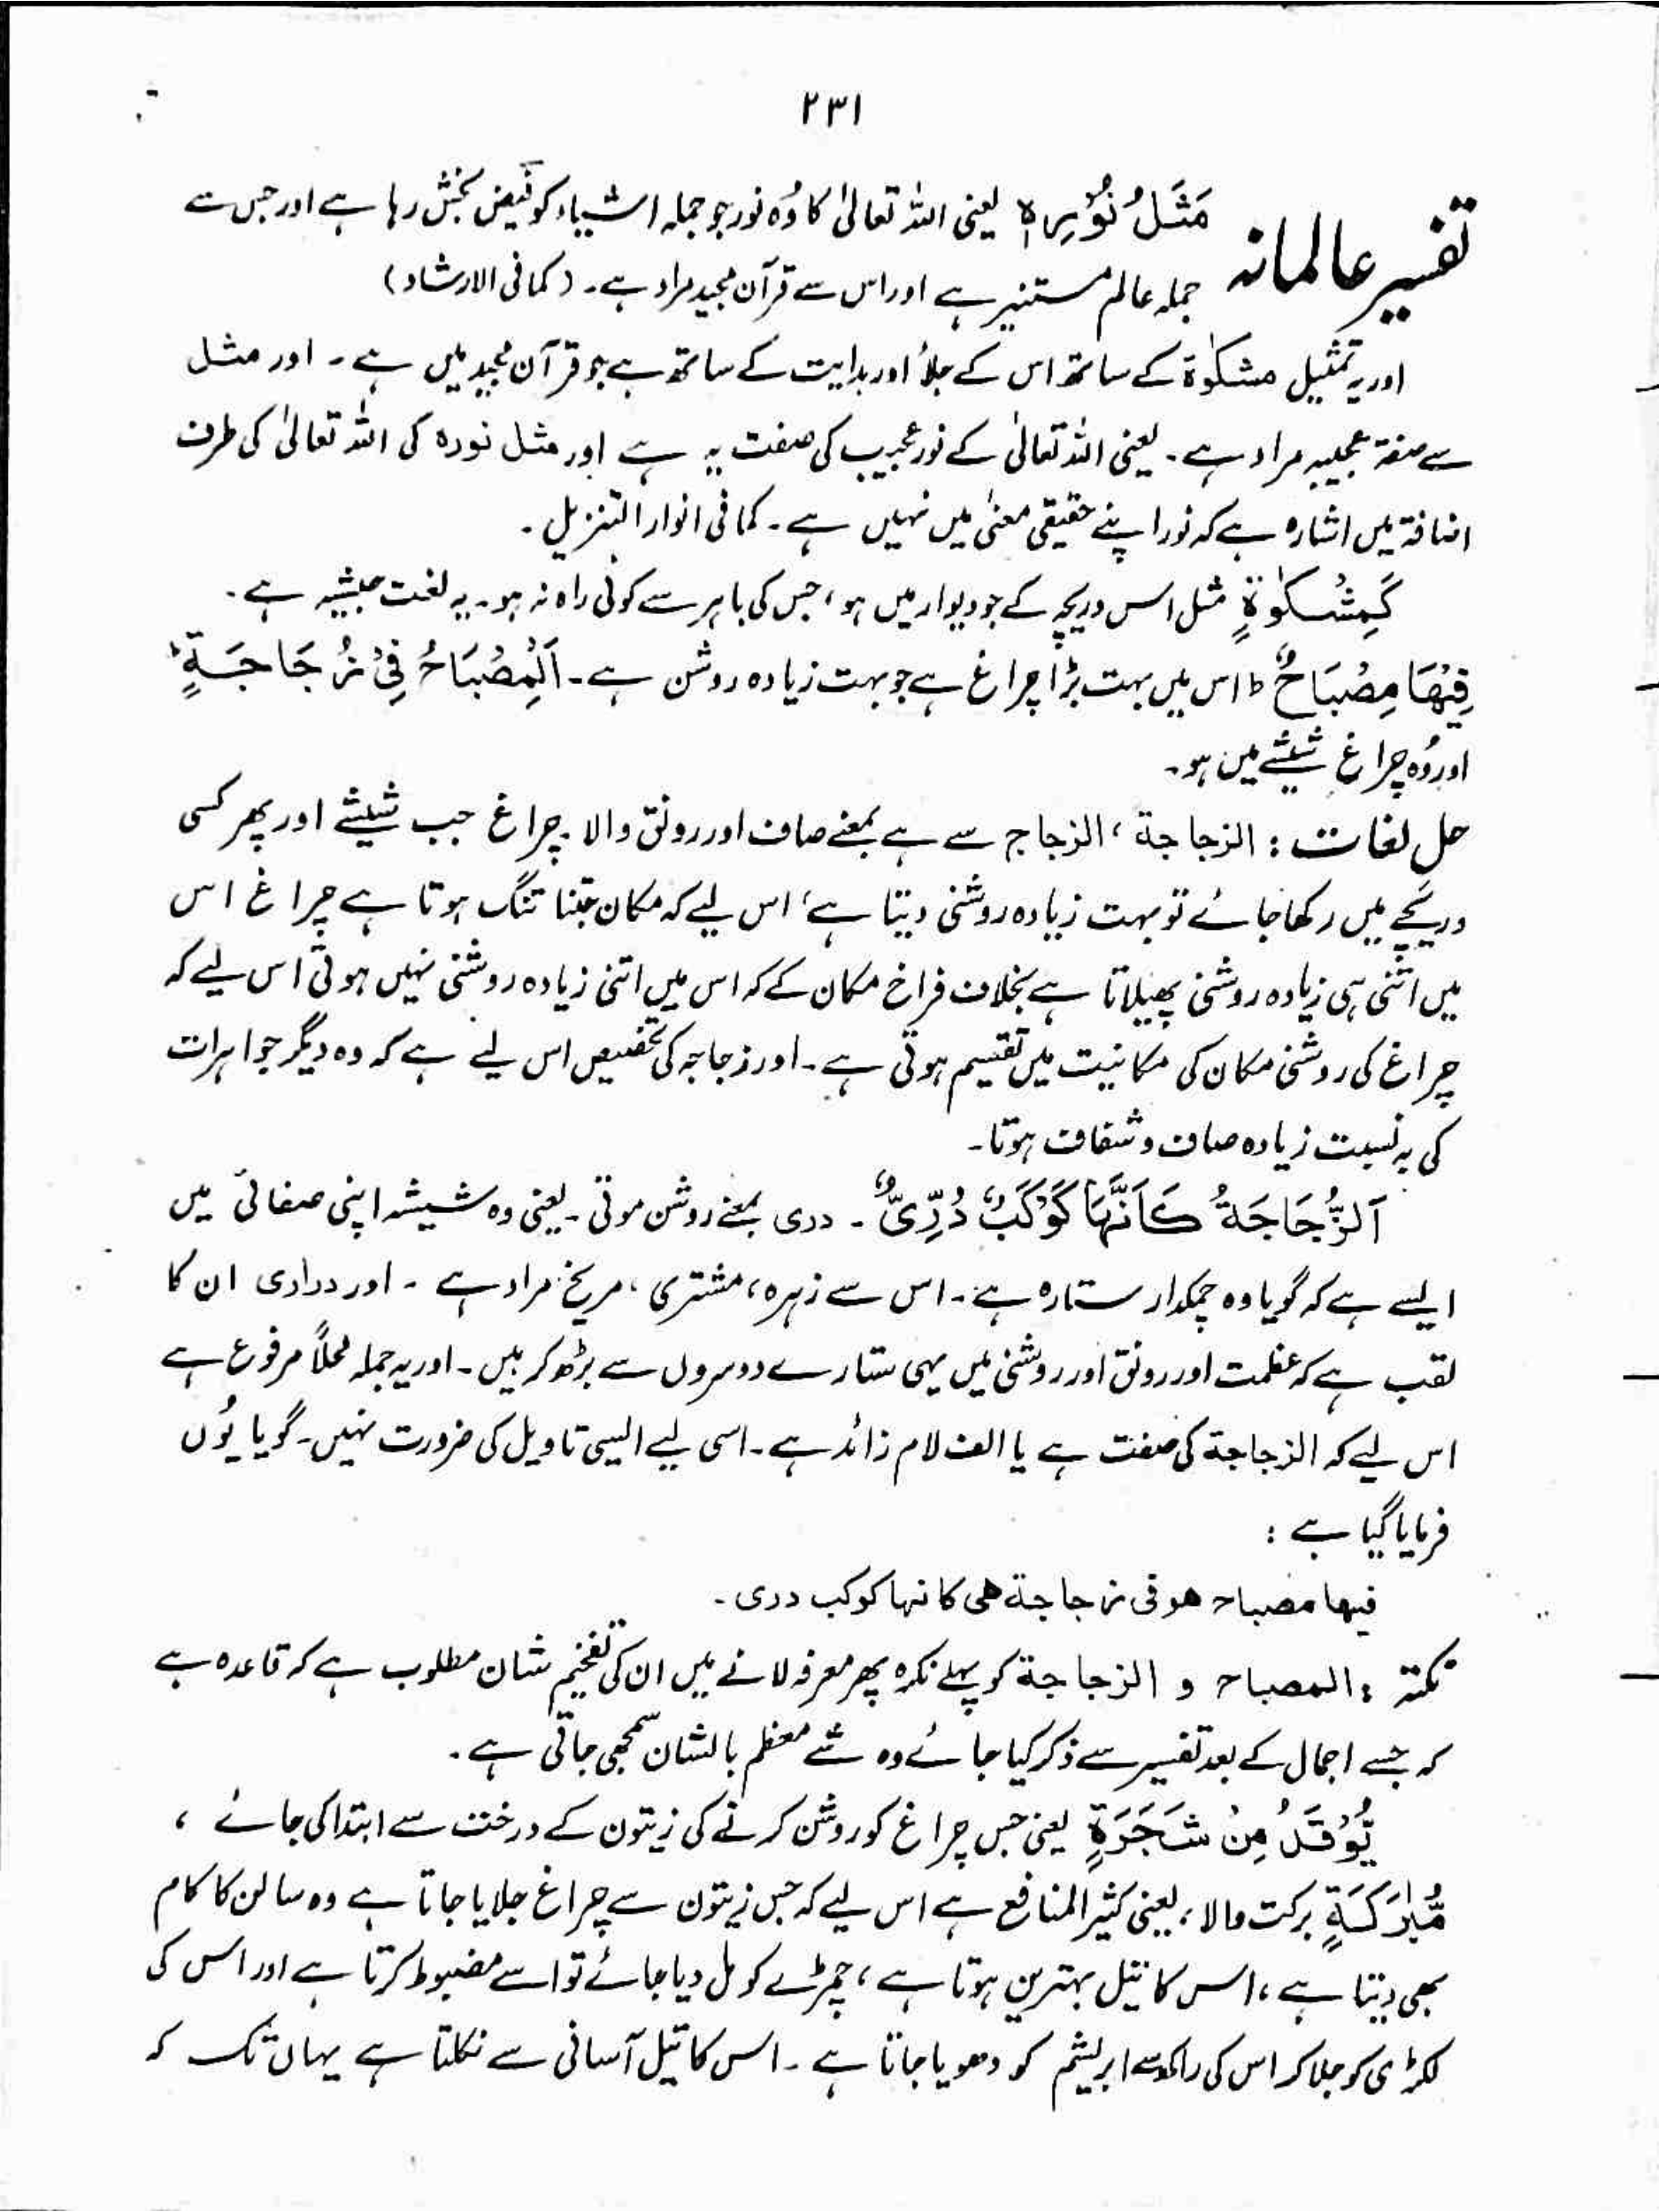 ۲۳۱
تفسیر عالمانہ
مَثَلُ نُوْرِہٖ یعنی اللہ تعالیٰ کا وُہ نور جو جملہ اشیاء کو فیض بخش رہا ہے اور جس سے
جملہ عالم مستنیر ہے اور اس سے قرآن مجید مراد ہے۔ (کما فی الارشاد)
اور یہ تمثیل مشکوٰۃ کے ساتھ اس کے جلاُ اور ہدایت کے ساتھ ہے جو قرآن مجید میں ہے۔ اور مثل
سے صفۃ عجیبہ مراد ہے۔ یعنی اللہ تعالیٰ کے نور عجیب کی صفت یہ ہے اور مثل نورہ کی اللہ تعالیٰ کی طرف
اضافۃ میں اشارہ ہے کہ نور اپنے حقیقی معنیٰ میں نہیں ہے۔ کما فی انوار التنزیل۔
کَمِشْکٰوۃٍ مثل اس دریچہ کے جو دیوار میں ہو، جس کی باہر سے کوئی راہ نہ ہو۔ یہ لغت حبشیہ ہے۔
فِیْھَا مِصْبَاحٌ ط اس میں بہت بڑا چراغ ہے جو بہت زیادہ روشن ہے۔ اَلْمِصْبَاحُ فِیْ زُجَاجَۃٍ ط
اور وُہ چراغ شیشے میں ہو۔
حل لغات : الزجاجۃ، الزجاج سے ہے بمعنے صاف اور رونق والا۔ چراغ جب شیشے اور پھر کسی
دریچے میں رکھا جائے تو بہت زیادہ روشنی دیتا ہے، اس لیے کہ مکان جتنا تنگ ہوتا ہے چراغ اس
میں اتنی ہی زیادہ روشنی پھیلاتا ہے بخلاف فراخ مکان کے کہ اس میں اتنی زیادہ روشنی نہیں ہوتی اس لیے کہ
چراغ کی روشنی مکان کی مکانیت میں تقسیم ہوتی ہے۔ اور زجاجہ کی تخصیص اس لیے ہے کہ وہ دیگر جواہرات
کی بہ نسبت زیادہ صاف و شفاف ہوتا۔
اَلزُّجَاجَۃُ کَاَنَّہَا کَوْکَبٌ دُرِّیٌّ۔ دری بمعنے روشن موتی۔ یعنی وہ شیشہ اپنی صفائی میں
ایسے ہے کہ گویا وہ چمکدار ستارہ ہے۔ اس سے زہرہ، مشتری، مریخ مراد ہے۔ اور دراری ان کا
لقب ہے کہ عظمت اور رونق اور روشنی میں یہی ستارے دوسروں سے بڑھ کر ہیں۔ اور یہ جملہ محلاً مرفوع ہے
اس لیے کہ الزجاجۃ کی صفت ہے یا الف لام زائد ہے۔ اسی لیے ایسی تاویل کی ضرورت نہیں۔ گویا یُوں
فرمایا گیا ہے :
فیھا مصباح ھو فی زجاجۃ ھی کانہا کوکب دری۔
نکتہ : المصباح و الزجاجۃ کو پہلے نکرہ پھر معرفہ لانے میں ان کی تفخیم شان مطلوب ہے کہ قاعدہ ہے
کہ جسے اجمال کے بعد تفسیر سے ذکر کیا جائے وہ شے معظم بالشان سمجھی جاتی ہے۔
یُّوْقَدُ مِنْ شَجَرَۃٍ یعنی جس چراغ کو روشن کرنے کی زیتون کے درخت سے ابتدا کی جائے،
مُّبٰرَکَۃٍ برکت والا، یعنی کثیر المنافع ہے اس لیے کہ جس زیتون سے چراغ جلایا جاتا ہے وہ سالن کا کام
بھی دیتا ہے، اس کا تیل بہترین ہوتا ہے، چمڑے کو مل دیا جائے تو اسے مضبوط کرتا ہے اور اس کی
لکڑی کو جلا کر اس کی راکھ سے ابریشم کو دھویا جاتا ہے۔ اس کا تیل آسانی سے نکلتا ہے یہاں تک کہ